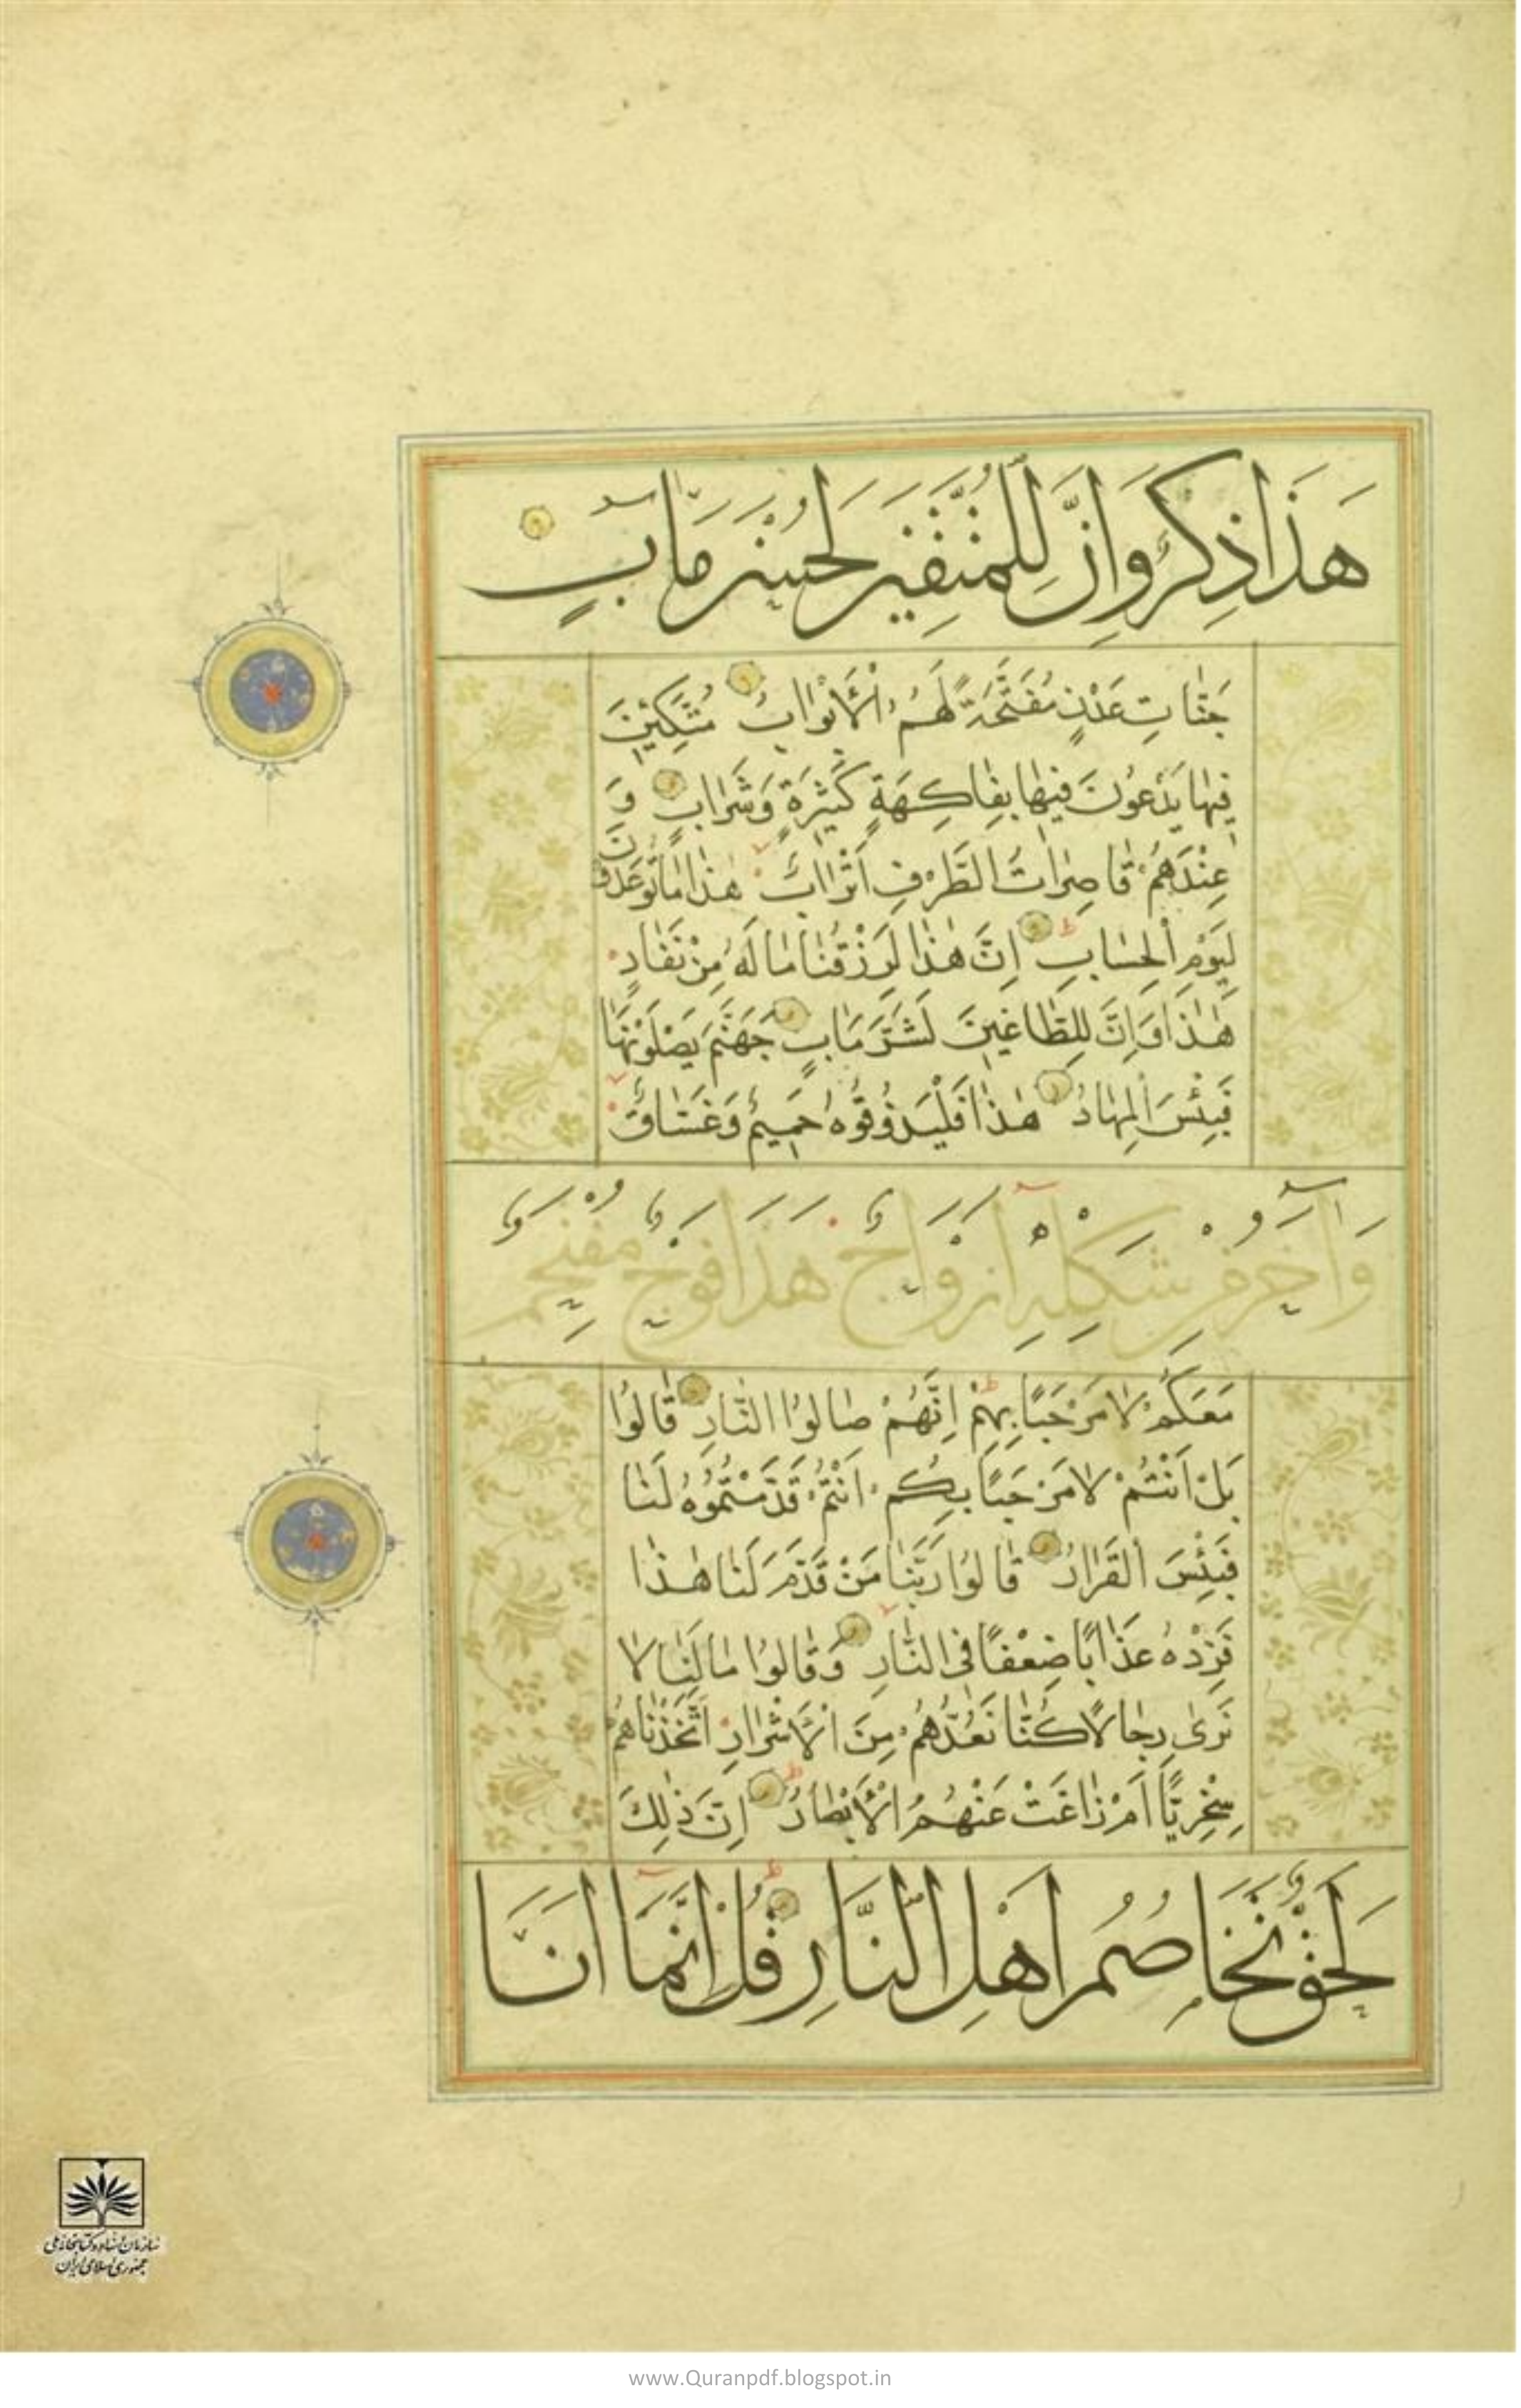 هَذَا ذِكْرٌ وَاِنَّ لِلْمُتَّقِينَ لَحُسْنَ مَآبٍ
جَنّٰاتِ عَدْنٍ مُفَتَّحَةً لَهُمُ الْأَبْوٰابُ مُتَّكِئِينَ
فِيهٰا يَدْعُونَ فِيهٰا بِفٰاكِهَةٍ كَثِيرَةٍ وَشَرٰابٍ وَ
عِنْدَهُمْ قٰاصِرٰاتُ الطَّرْفِ اَتْرٰابٌ هٰذٰا مٰا تُوعَدُونَ
لِيَوْمِ الْحِسٰابِ اِنَّ هٰذٰا لَرِزْقُنٰا مٰا لَهُ مِنْ نَفٰادٍ
هٰذٰا وَاِنَّ لِلطّٰاغِينَ لَشَرَّ مَآبٍ جَهَنَّمَ يَصْلَوْنَهٰا
فَبِئْسَ الْمِهٰادُ هٰذٰا فَلْيَذُوقُوهُ حَمِيمٌ وَغَسّٰاقٌ
وَآخَرُ مِنْ شَكْلِهِ اَزْوَاجٌ هَذَا فَوْجٌ مُقْتَحِمٌ
مَعَكُمْ لٰا مَرْحَبًا بِهِمْ اِنَّهُمْ صٰالُوا النّٰارِ قٰالُوا
بَلْ اَنْتُمْ لٰا مَرْحَبًا بِكُمْ اَنْتُمْ قَدَّمْتُمُوهُ لَنٰا
فَبِئْسَ الْقَرٰارُ قٰالُوا رَبَّنٰا مَنْ قَدَّمَ لَنٰا هٰذٰا
فَزِدْهُ عَذٰابًا ضِعْفًا فِى النّٰارِ وَقٰالُوا مٰا لَنٰا لٰا
نَرىٰ رِجٰالًا كُنّٰا نَعُدُّهُمْ مِنَ الْأَشْرٰارِ اَتَّخَذْنٰاهُمْ
سِخْرِيًّا اَمْ زٰاغَتْ عَنْهُمُ الْأَبْصٰارُ اِنَّ ذٰلِكَ
لَحَقٌّ تَخَاصُمُ اَهْلِ النَّارِ قُلْ اِنَّمَا اَنَا
سازمان اسناد و کتابخانه ملی
جمهوری اسلامی ایران
www.Quranpdf.blogspot.in